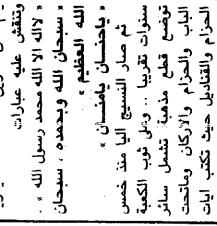 وتنقش عليه عبارات
« لااله الا الله محمد رسول الله » .
« سبحان الله وبحمده ، سبحان
الله العظيم »
« ياحنان يامنان »
ثم صار النسيج اليا منذ خمس
سنوات تقريبا .. وعلى ثوب الكعبة
توضع قطع مذهبة تشمل سائر
الباب والحزام والاركان وماتحت
الحزام والقناديل حيث تكتب ايات